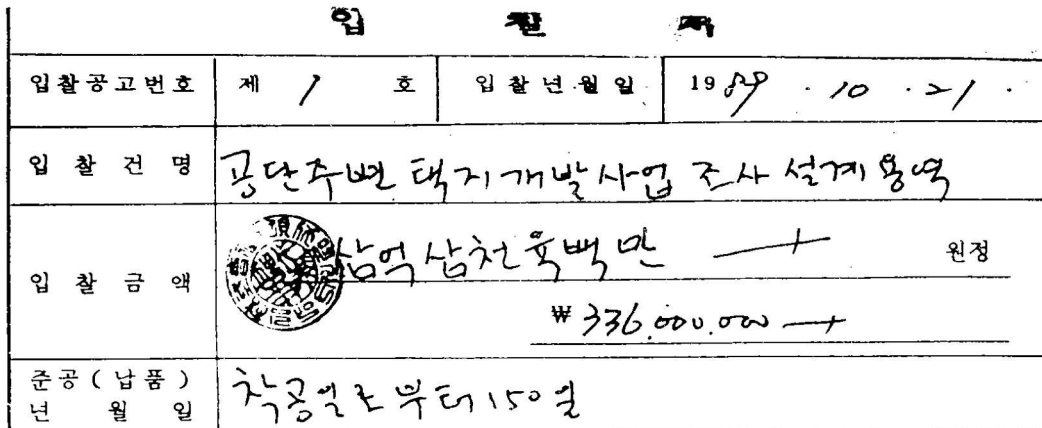 입찰서
입찰공고번호 제 1 호 입찰년월일 1989 . 10 . 21 .
입찰건명 공단주변 택지개발사업 조사설계용역
입찰금액 삼억삼천육백만 원정
₩ 336,000,000
준공(납품)
년 월 일 착공일로부터 150일